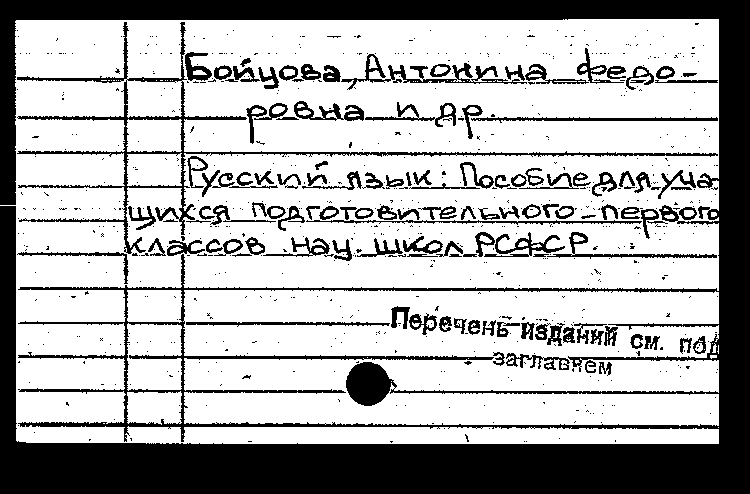 Бойцова, Антонина Федо-
ровна и др.
Русский язык: Пособие для уча-
щихся подготовительного-первого
классов нац. школ РСФСР.
Перечень изданий см. под
заглавием